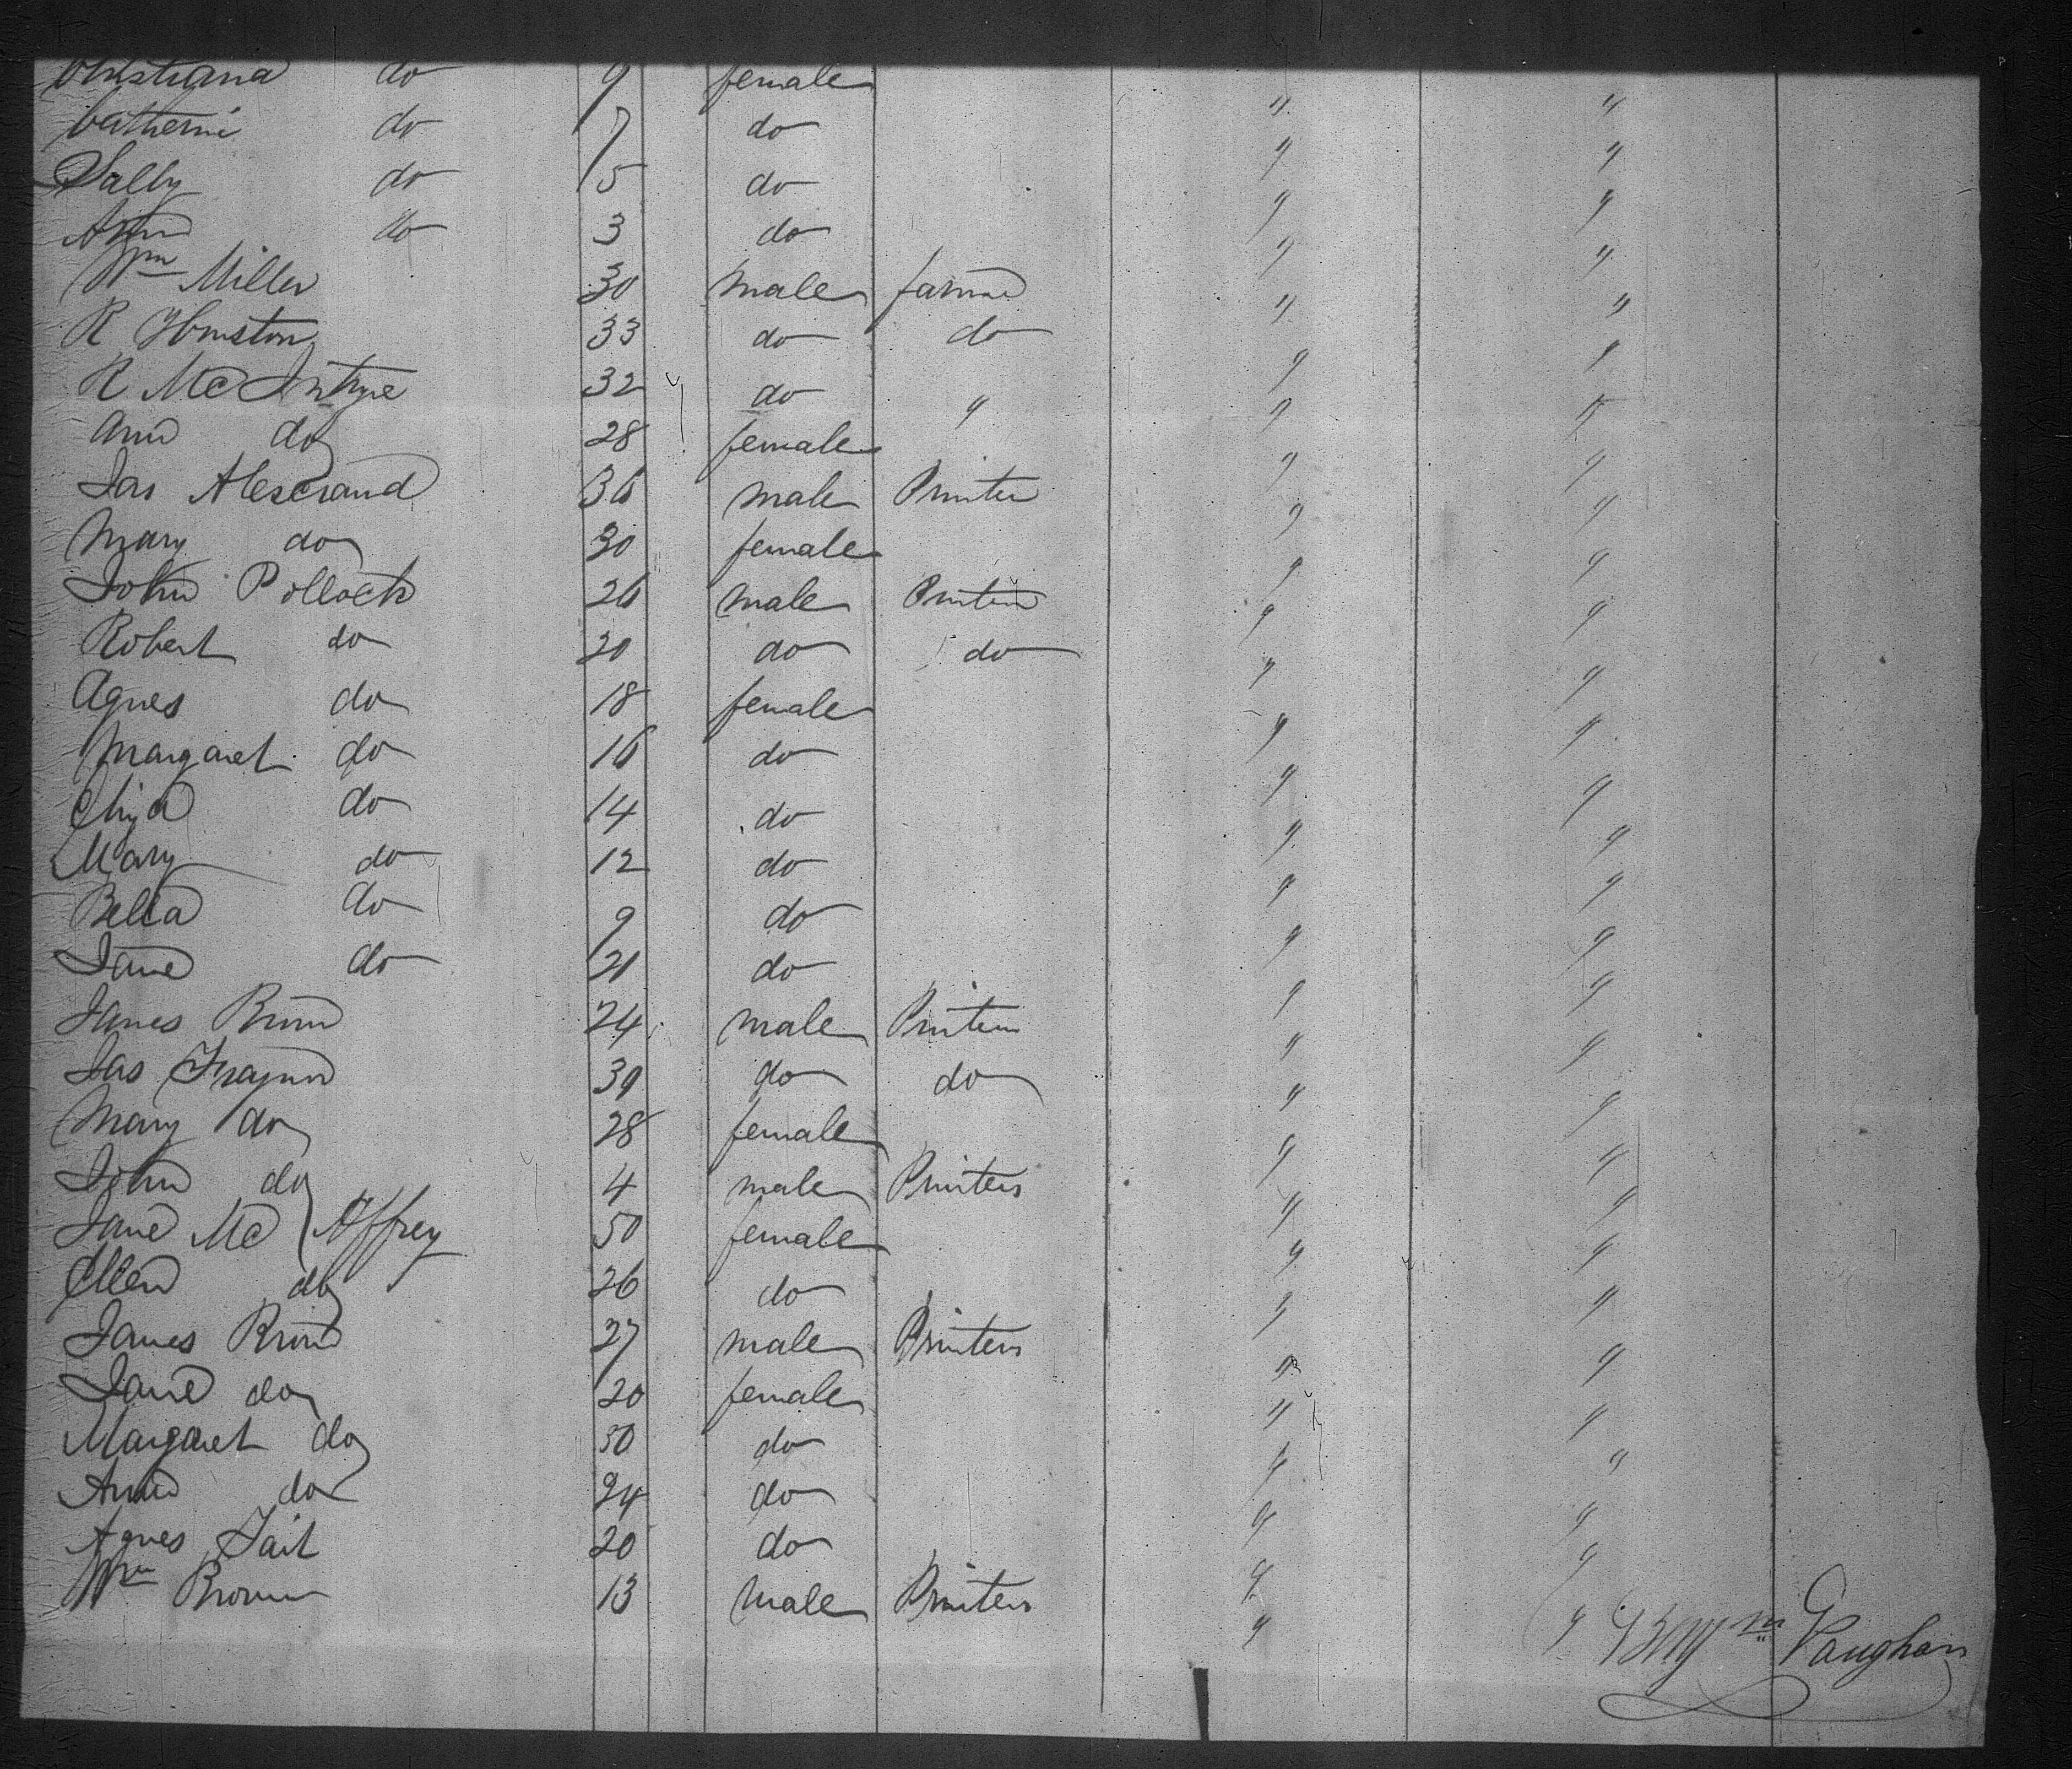 Christiana do 9 female
Catherine do 7 do " "
Sally do 5 do " "
Ann do 3 do " "
Wm Miller 30 male farmer " "
R 33 do do " "
R McIntyre 32 do " " "
Ann do 28 female " "
Jas Alexand 36 male Printer " "
Mary do 30 female " "
John Pollock 26 male Printer " "
Robert do 20 do do " "
Agnes do 18 female " "
Margaret do 16 do " "
Eliza do 14 do " "
Mary do 12 do " "
Bella do 9 do " "
Jane do 21 do " "
James 24 male Printer " "
Jas 39 do do " "
Mary do 28 female " "
John do 4 male Printers " "
Jane Mc Affrey 50 female " "
Ellen do 26 do " "
James 27 male Printers " "
Jane do 20 female " "
Margaret do 30 do " "
Ann do 24 do " "
Agnes Tait 20 do " "
Wm Brown 13 male Printers " "
Vaughan